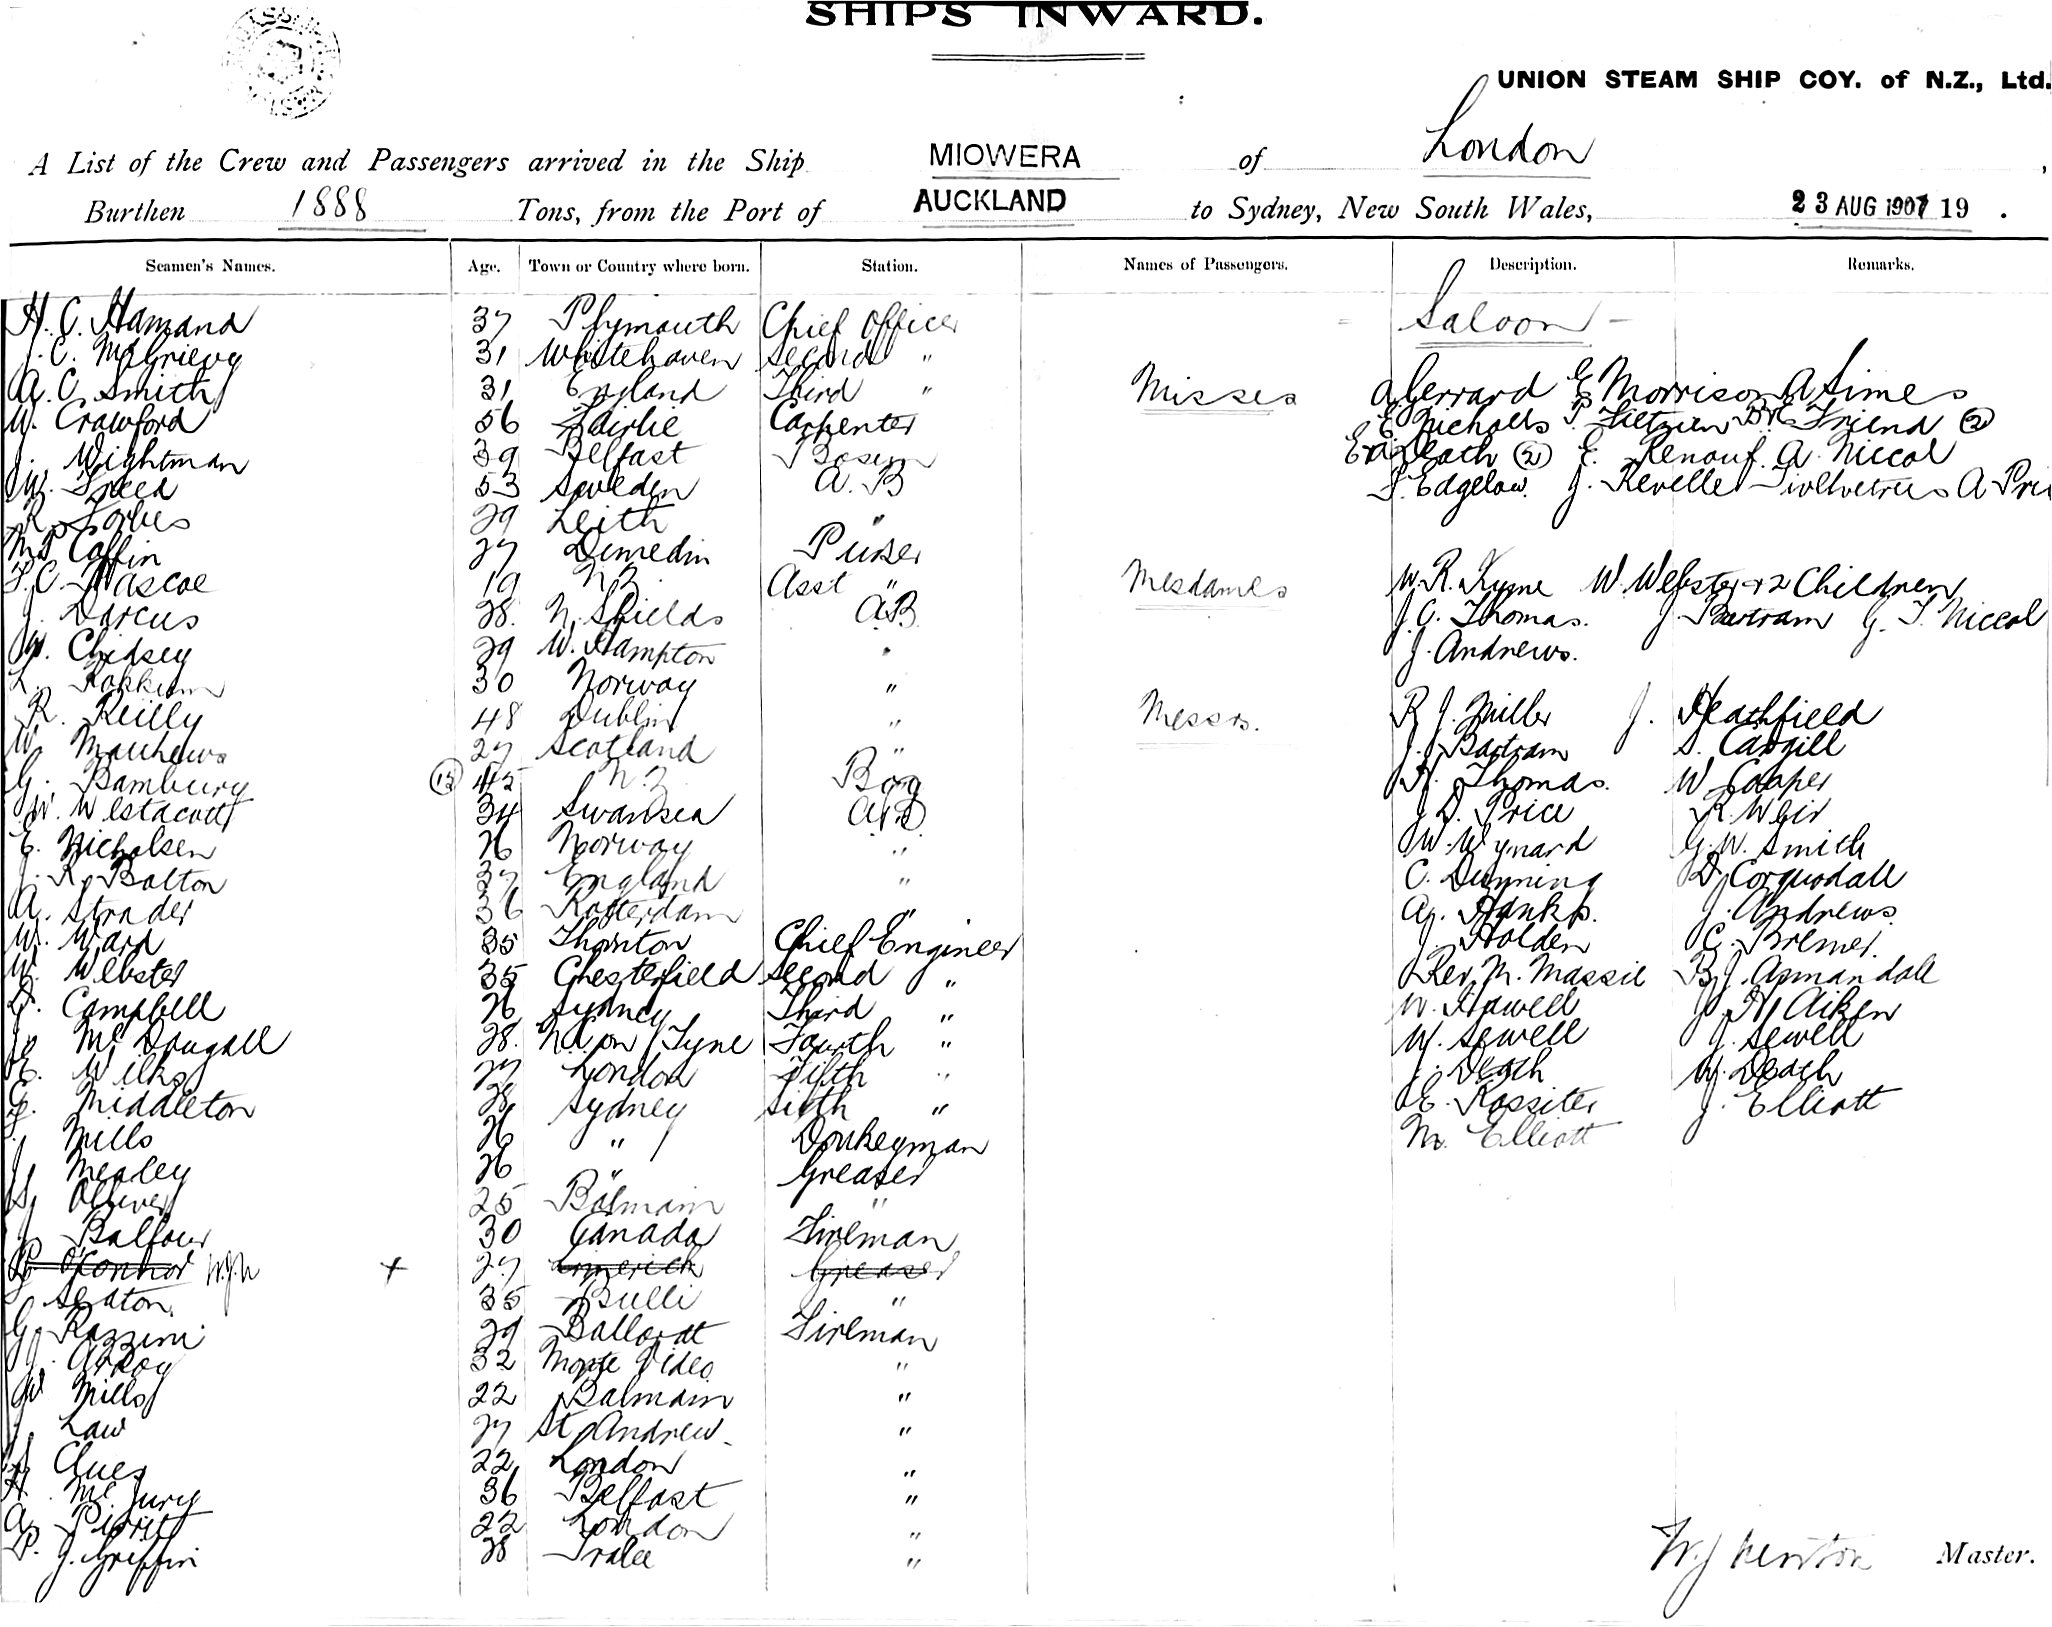 SHIPS INWARD.
UNION STEAM SHIP COY. of N.Z., Ltd.
A List of the Crew and Passengers arrived in the Ship MIOWERA of London,
Burthen 1888 Tons, from the Port of AUCKLAND to Sydney, New South Wales, 23 AUG 1907 19 .
Seamen's Names. Age. Town or Country where born. Station. Names of Passengers. Description. Remarks.
H. C. Hamand 37 Plymouth Chief Officer
Saloon
J. C. McGrievy 31 Whitehaven Second "
A. C. Smith 31 England Third "
Misses A Gerrard E Morrison A Simes
W. Crawford 56 Fairlie Carpenter
E Nicholls Friend 2
J. Wightman 39 Belfast Bosun
Death 2 E. Renouf A Niccol
W. Speed 53 Sweden A.B
Edgelow J. Revelle A Pri
R. Forbes 29 Leith "
Coffin 27 Dunedin Purser
F. C. Pascoe 19 N.Z. Asst "
Mesdames W. R. Kyme W. Webster + 2 Children
J. Dorcus 28. N. Shields A.B
J. C. Thomas. J. Bartram G. T. Niccol
W. Chidsey 29 W. Hampton "
J. Andrews.
30 Norway "
R. Reilly 48 Dublin "
Messrs. R J. Miller J. Heathfield
W. Matthews 27 Scotland "
J. Bartram S. Cargill
G. Bambury 15 45 N.Z Boy
H. Thomas. W Cooper
W. Westacott 34 Swansea A.B
J D. Price R. Weir
E. Nicholsen 26 Norway "
W. Wynard G. W. Smith
J. R. Bolton 37 England "
C. Dunning D. Corquodall
A. Strader 36 Rotterdam "
Hanks. J. Andrews
W. Ward 35 Thornton Chief Engineer
J. Holden C. Bremer.
W. Webster 35 Chesterfield Second "
Rev. M. Massie B. J. Anmandale
D. Campbell 26 Sydney Third "
W. Howell H Aiken
J. McDougall 28. N.C. on Tyne Fourth "
W. Sewell J. Sewell
E. Wilks 27 London Fifth "
J. Death W. Death
G. Middleton 28 Sydney Sixth "
E. Rossiter J. Elliott
J. Mills 26 " Donkeyman
M. Elliott
J. Mealey 26 " Greaser
Olliver 25 Balmain "
J. Balfour 30 Canada Fireman
P. O'Connor W.J.N + 27 Limerick Greaser
Seaton 35 Bulli "
G. Razzini 29 Ballarat Fireman
J. 32 Monte Video "
W Mills 22 Balmain "
J. Law 27 St Andrew "
Clues 22 London "
H. McJury 36 Belfast "
22 London "
P. J. Griffin 28 Tralee "
W. J Newton Master.